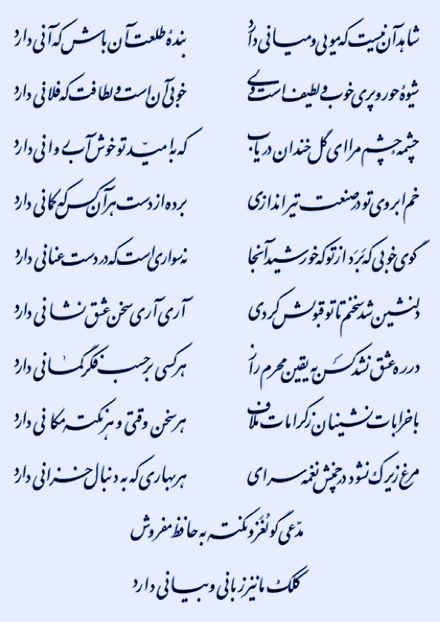 شاهد آن نیست که مویی و میانی دارد
بنده طلعت آن باش که آنی دارد
شیوه حور و پری خوب و لطیف است ولی
خوبی آن است و لطافت که فلانی دارد
چشمه چشم مرا ای گل خندان دریاب
که به امید تو خوش آب روانی دارد
خم ابروی تو در صنعت تیراندازی
برده از دست هر آن کس که کمانی دارد
گوی خوبی که برد از تو که خورشید آنجا
نه سواری است که در دست عنانی دارد
دلنشین شد سخنم تا تو قبولش کردی
آری آری سخن عشق نشانی دارد
در ره عشق نشد کس به یقین محرم راز
هر کسی بر حسب فکر گمانی دارد
با خرابات نشینان ز کرامات ملاف
هر سخن وقتی و هر نکته مکانی دارد
مرغ زیرک نشود در چمنش نغمه سرای
هر بهاری که به دنبال خزانی دارد
مدعی گو لغز و نکته به حافظ مفروش
کلک ما نیز زبانی و بیانی دارد